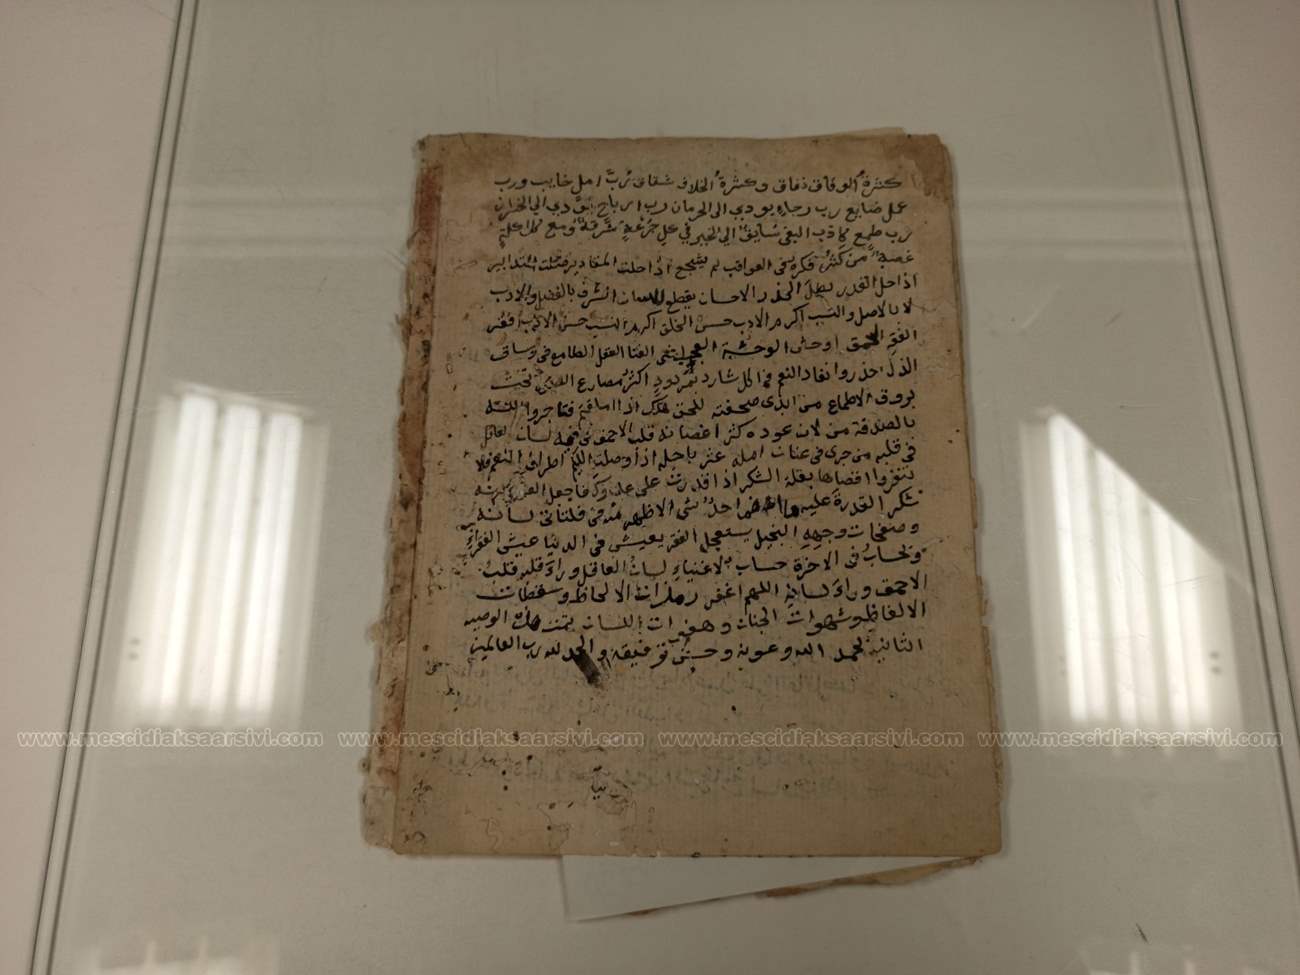 كثرة الوفاق نفاق وكثرة الخلاف شقاق رب امل خايب ورب
عمل ضايع رب رجاء يودي الى الحرمان رب ارباح تؤدي الي الخسران
رب طمع كاذب البغي سايق الي الحين في كل جرعة شرقة ومع كل اكلة
غصة من كثر فكره في العواقب لم يشجع اذا حلت المقادير ضلت التدابير
اذا حل القدر بطل الحذر الاحسان يقطع اللسان الشرف بالفضل والادب
لا بالاصل والنسب اكرم الادب حسن الخلق اكرم النسب حسن الادب افقر
الفقر الحمق اوحش الوحشة العجب اغنى الغنا العقل الطامع في وثاق
الذل احذروا نفاد النعم فما كل شارد بمردود اكثر مصارع العقول تحت
بروق الاطماع من ابدى صفحته للحق هلك اذا املقتم فتاجروا الله
بالصدقة من لان عوده كثر اغصانه قلب الاحمق في فيه لسان العاقل
في قلبه من جرى في عنان امله عثر باجله اذا وصلت اليكم اطراف النعم فلا
تنفروا اقصاها بقلة الشكر اذا قدرت على عدوك فاجعل العفو عنه
شكر القدرة عليه ما اضمر احد شئ الا ظهر منه في فلتات لسانه
وصفحات وجهه البخيل يستعجل الفقر يعيش في الدنيا عيش الفقراء
ويحاسب في الاخرة حساب الاغنياء لسان العاقل وراء قلبه قلب
الاحمق وراء لسانه اللهم اغفر رمزات الالحاظ وسقطات
الالفاظ وشهوات الجنان وهفوات اللسان تمت هذه الوصية
الثانية بحمد الله وعونه وحسن توفيقه والحمد لله رب العالمين
www.mescidiaksaarsivi.com www.mescidiaksaarsivi.com www.mescidiaksaarsivi.com www.mescidiaksaarsivi.com